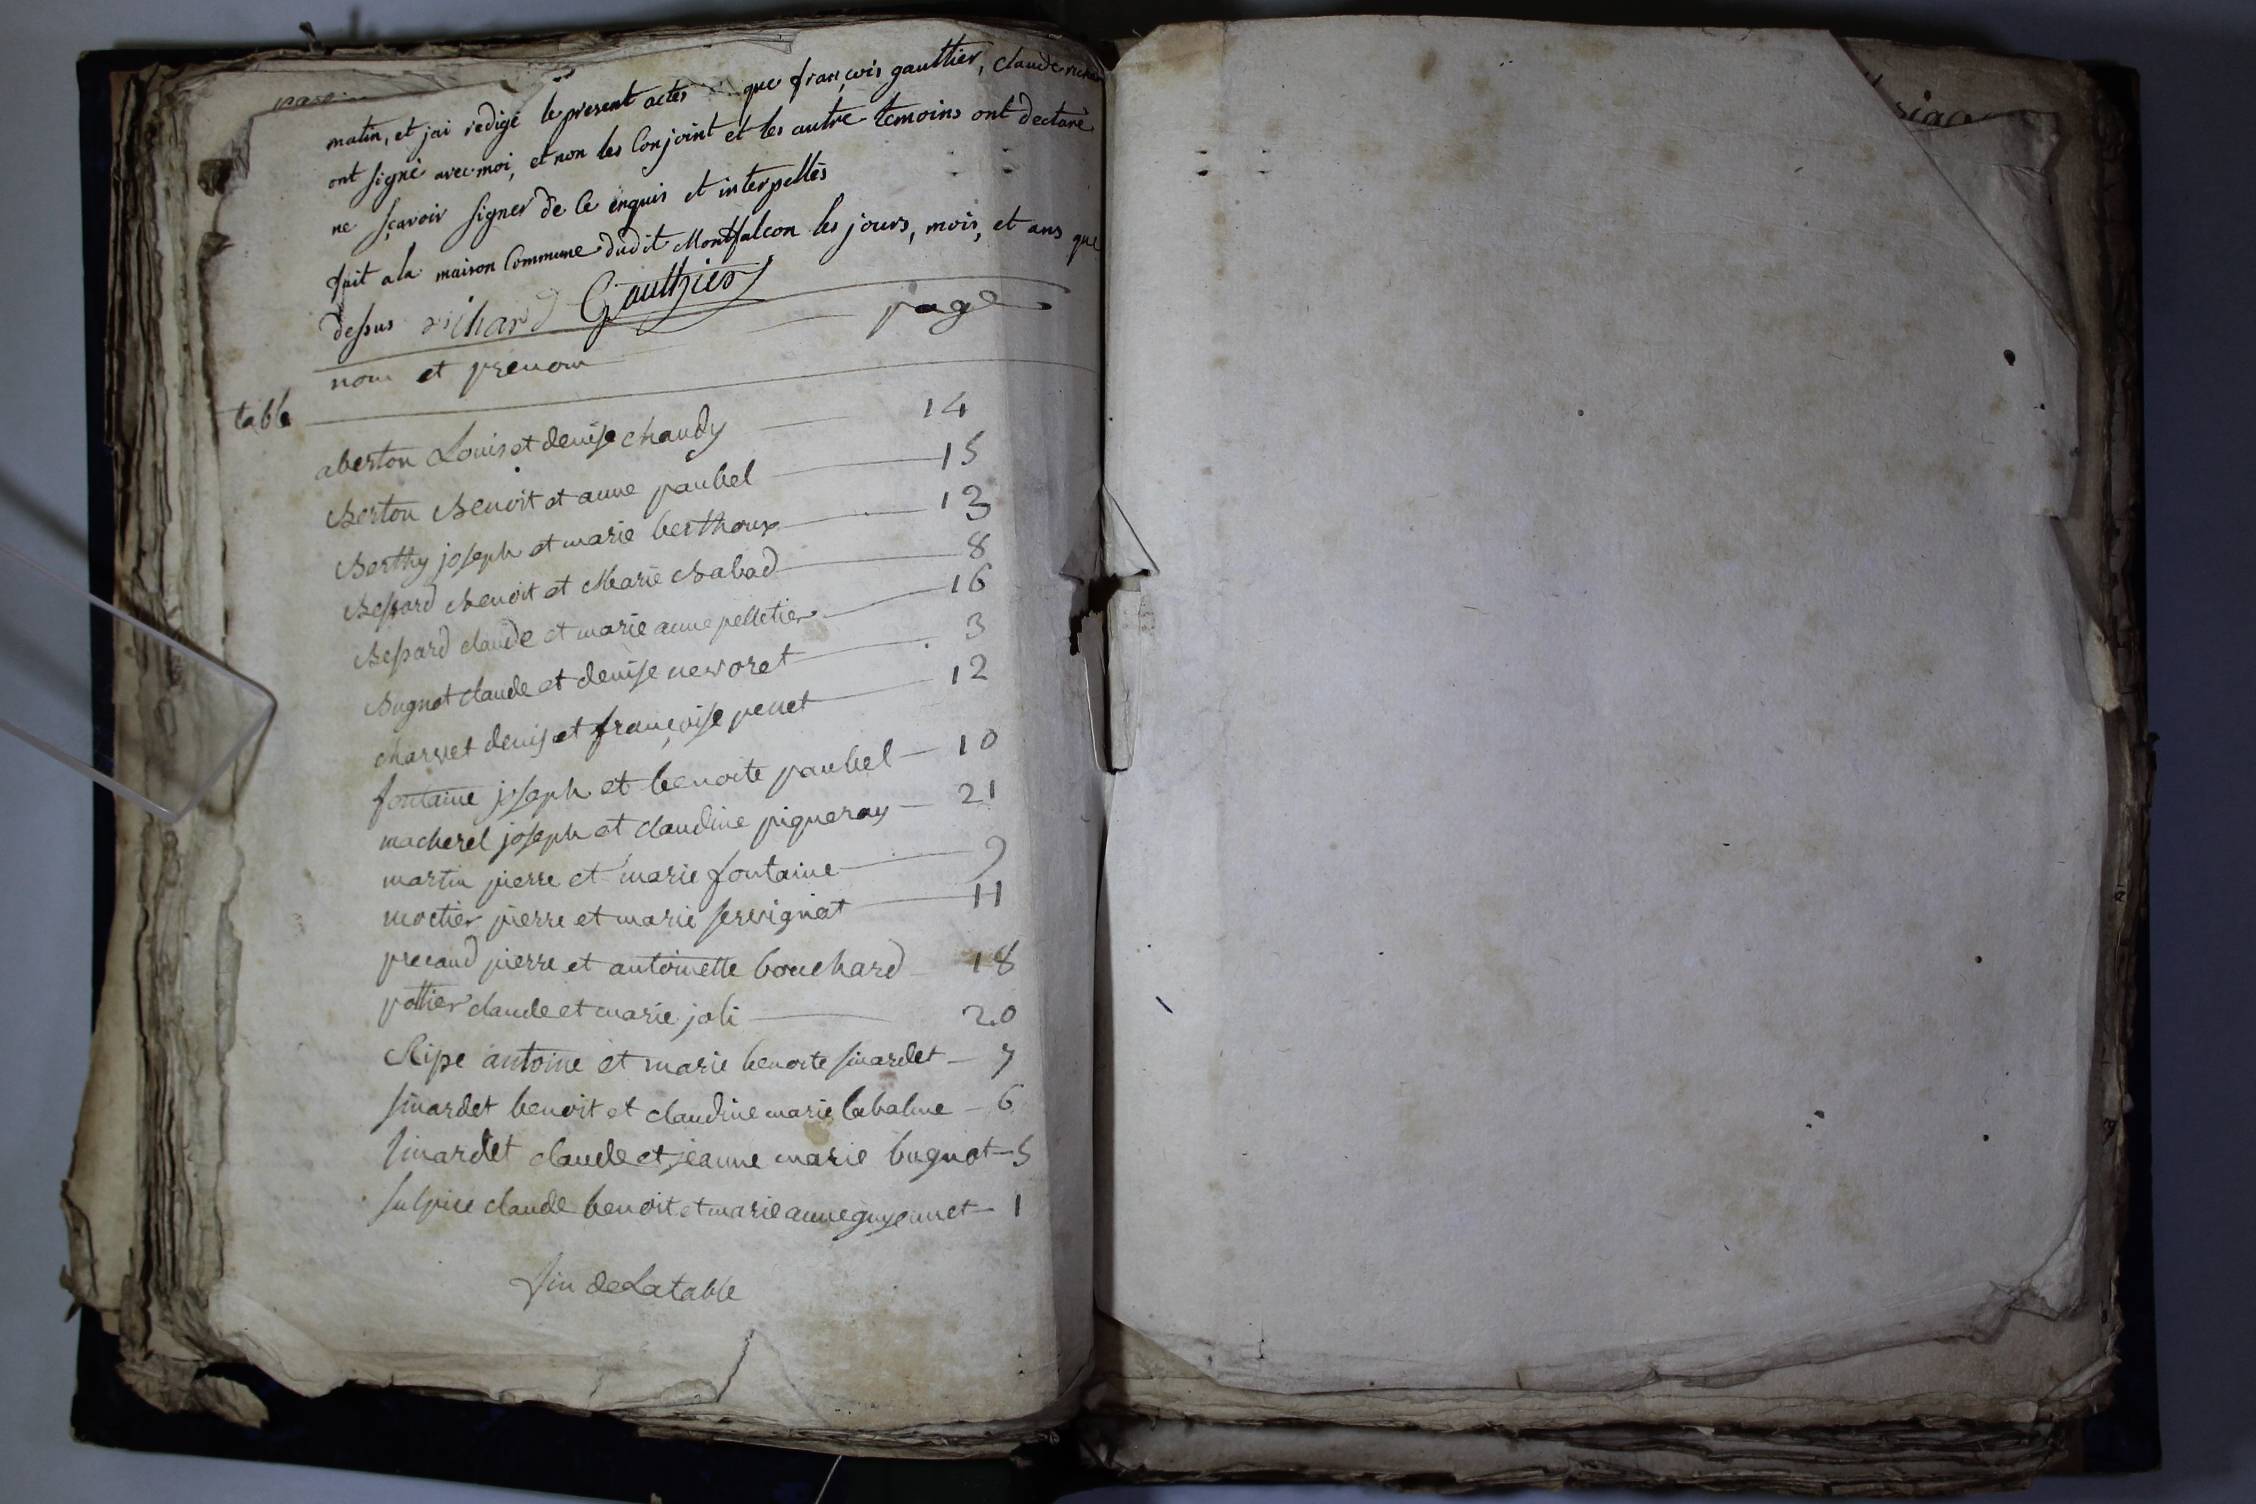 matin, et jai redigé le present actes que françois gauthier, claude richar
ont signé avec moi, et non les Conjoint et les autre temoins ont declaré
ne sçavoir signer de ce enquis et interpellés
fait a la maison Commune dudit Montfalcon les jours, mois, et ans que
dessus richard Gauthier
nom et prenom page
table
aberton Louis et denise chaudy 14
Berton Benoit et anne paubel 15
Berthy joseph et marie berthoux 13
Bessard Benoit et Marie Babad 8
Bessard claude et marie anne pelletier 16
Bugnot claude et denise nevoret 3
charvet denis et françoise penet 12
fontaine joseph et benoite paubel 10
macherel joseph et claudine pigneray 21
martin pierre et marie fontaine 9
moctier pierre et marie servignat 11
precaud pierre et antoinette bouchard 18
pottier claude et marie joli 20
Ripe antoine et marie benoite sinardet 7
sinardet benoit et claudine marie labalme 6
sinardet claude et jeanne marie bugnot 5
sulpice claude benoit et marie anne guyennet 1
fin de La table